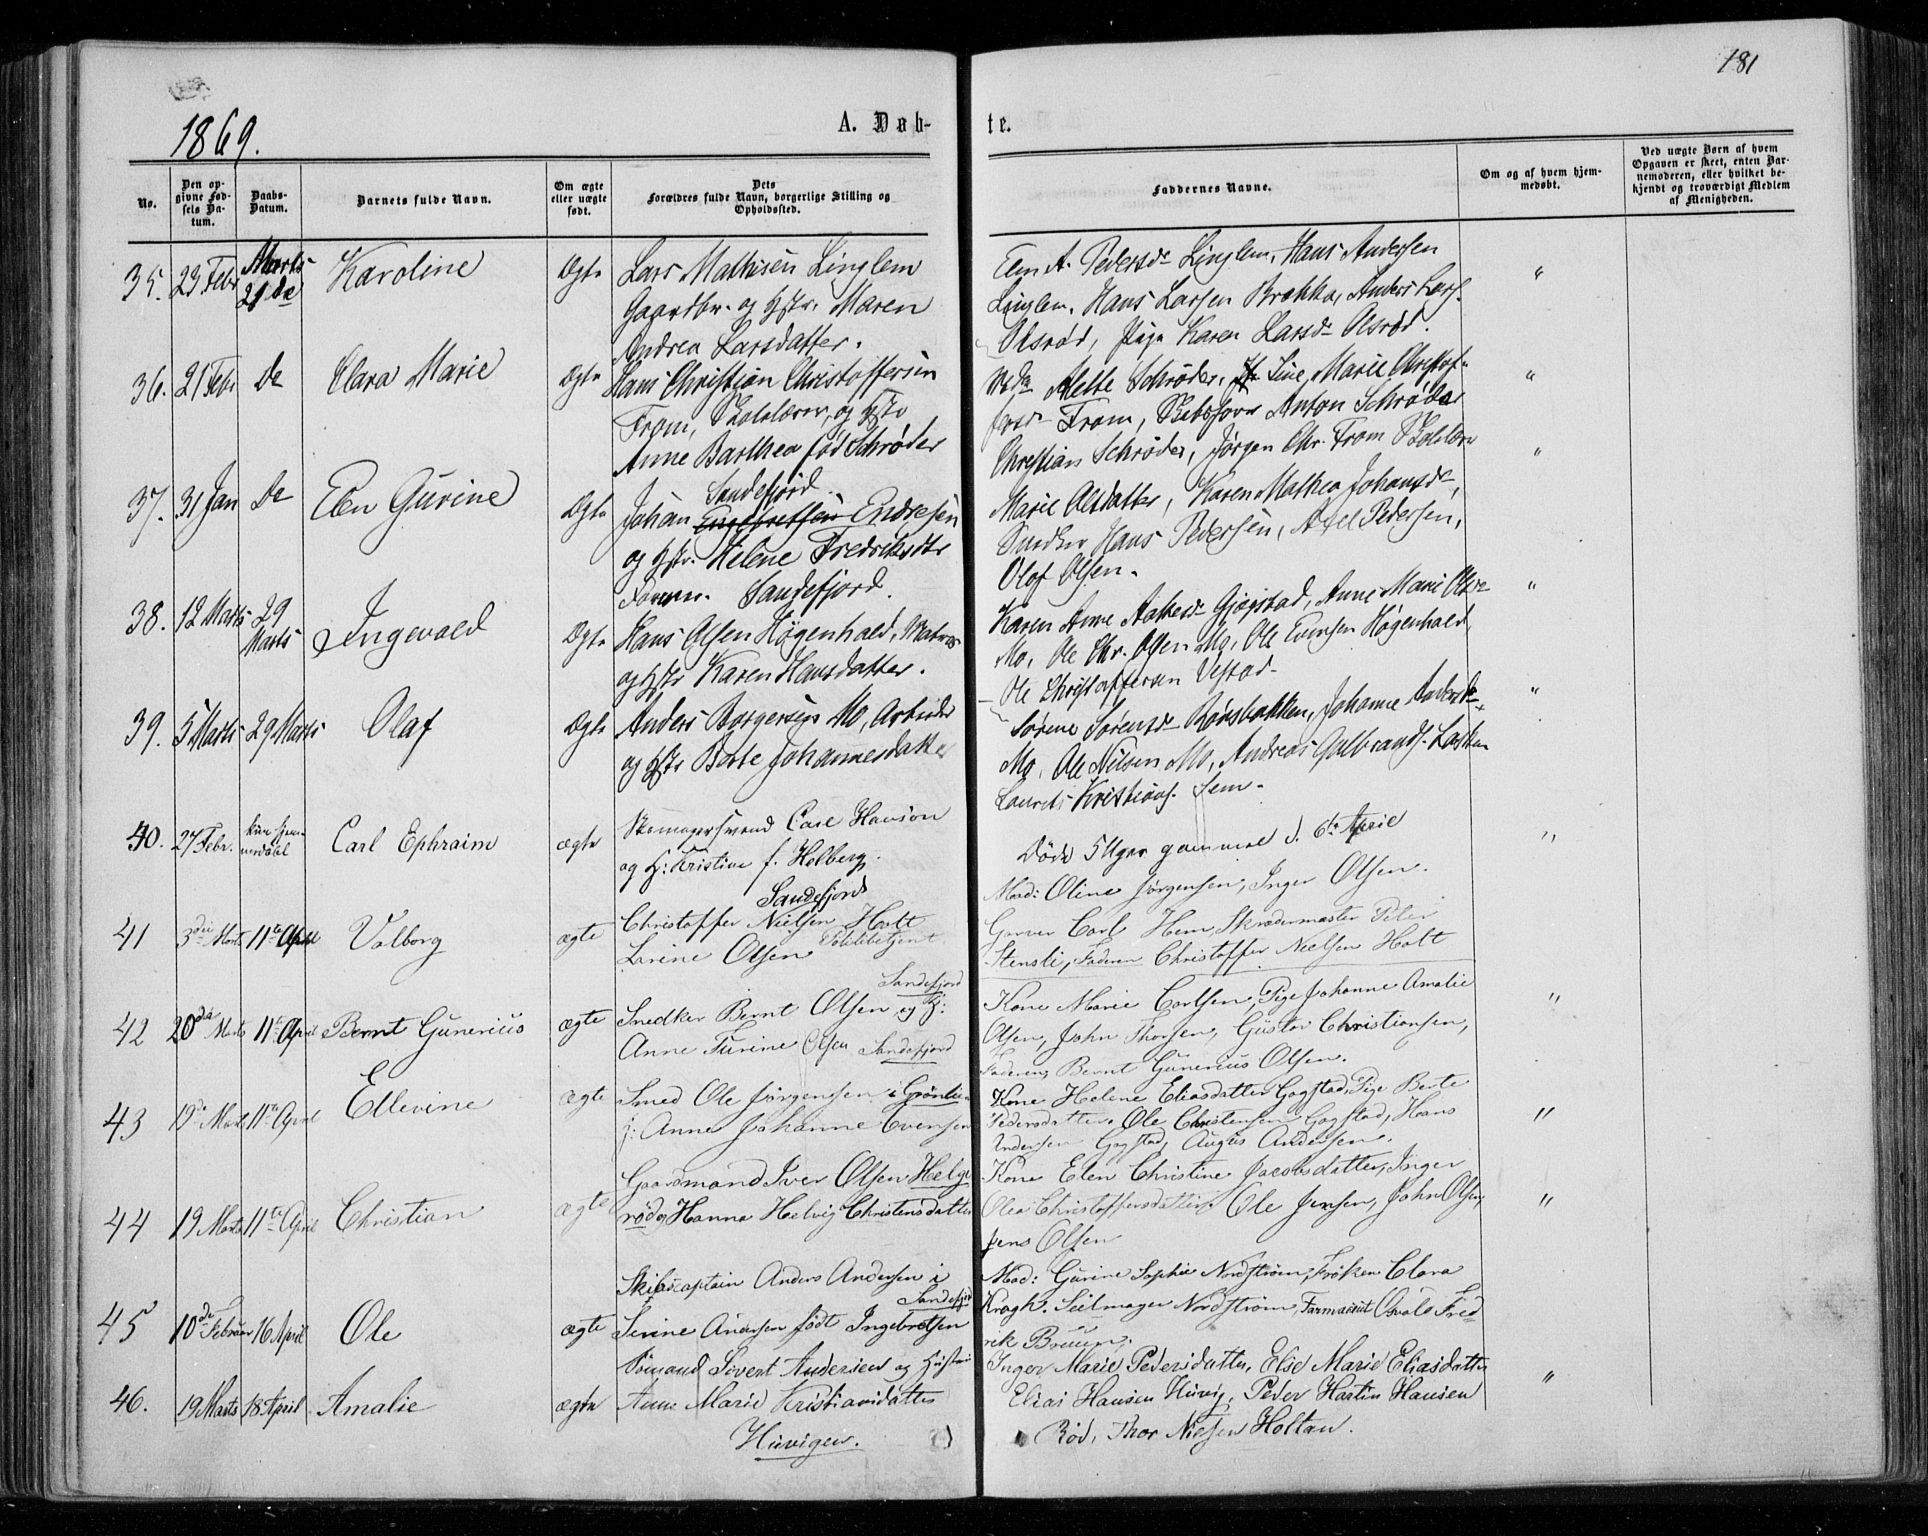 181
1869.
A. Døb-
te.
No.
Den op-
givne Fød-
sels Da-
tum.
Daabs-
Datum.
Barnets fulde Navn.
Om ægte
eller uægte
født.
Dets
Forældres fulde Navn, borgerlige Stilling og
Opholdssted.
Faddernes Navne.
Om og af hvem hjem-
medøbt.
Ved uægte Børn af hvem
Opgaven er skeet, enten Bar-
nemoderen, eller hvilket be-
kjendt og troværdigt Medlem
af Menigheden.
35. 23 Febr Marts 21de Karoline Ægte Lars Mathisen Linglem
Gaardbr. og Hstr. Maren
Andrea Larsdatter.
Pedersdr Linglem, Hans Andersen
Linglem, Hans Larsen Brekke, Anders Lars.
Olsrød, Pige Karen Larsdr Olsrød.
"
36. 21 Febr De Clara Marie Ægte Hans Christian Christoffersen
From, Skolelærer, og Hstr
Anne Barthea fød Schrøder
Sandefjord.
Mette Schrøder, Line Marie Christof-
fersdr From, Skibsfører Anton Schrøder
Christian Schrøder, Jørgen Chr. From Skolelærer
"
37. 31 Jan De Elen Gurine Ægte Johan Engebretsen Endresen
og Hstr. Helene Fredriksdtr
Sandefjord.
Marie Olsdatter, Karen Mathea Johansdr,
Snedker Hans Pedersen, Axel Pedersen,
Olaf Olsen.
"
38. 12 Marts 29 Marts Ingevald Ægte Hans Olsen Høgenhald, Matros
og Hstr Karen Hansdatter.
Karen Anne Gjøgstad, Anne Marie Olsdr
Mo, Ole Chr. Olsen Mo, Ole Evensen Høgenhald,
Ole Christoffersen Vestad.
"
39. 5 Marts 29 Marts Olaf Ægte Anders Borgersen Mo, Arbeider
og Hstr Berte Johannesdatter
Sørine Sørensdr Rønsbakken, Johanne Andersdr
Mo, Ole Nilsen Mo, Andreas Gulbrands.
Laurits Kristians. Sem.
"
40. 27 Febr. kun hjem-
medøbt Carl Ephraim ægte Skomagersvend Carl Hanson
og H: Kristine f. Holberg.
Sandefjord
Døde 5 Uger gammel d. 6te April
"
41 3die Marts 11te April Valborg ægte Christoffer Nielsen Holt
Politibetjent
Lovine Olsen
Sandefjord
Mad: Oline Jørgensen, Inger Olsen.
Garver Carl Hem, Skredermester Peter
Stensli, Faderen Christoffer Nielsen Holt
42 20de Marts 11te April Bernt Gunerius ægte Snedker Bernt Olsen og H:
Anne Turine Olsen Sandefjord
Kone Marie Carlsen, Pige Johanne Amalie
Olsen, John Thorsen, Gustav Christiansen,
Faderen, Bernt Gunerius Olsen.
"
43 19de Marts 11te April Ellevine ægte Smed Ole Jørgensen i Grønli
H: Anne Johanne Evensen
Kone Helene Eliasdatter Gogstad, Pige Berte
Pedersdatter, Ole Christensen Gogstad, Hans
Andersen Gogstad, August Andersen.
"
44 19 Marts 11te April Christian ægte Gaardmand Iver Olsen Helge
rød og Hanna Helvig Christensdatter
Kone Elen Christine Jacobsdatter, Inger
Olea Christoffersdatter, Ole Jensen, John Olsen,
Jens Olsen
"
45 10de Februar 16 April Ole ægte Skibscaptain Anders Andersen i
Sandefjord
Serine Andersen født Ingebretsen
Mad: Gurine Sophie Nordstrøm, Frøken Clara
Krogh. Seilmager Nordstrøm Farmaceut Osvald Fred-
rik Bruun.
46. 19 Marts 18 April Amalie ægte Sømand Sivert Andersen og Hustru
Anne Marie Kristiansdatter
Huvigen.
Inger Marie Pedersdatter, Else Marie Eliasdatter
Elias Hansen Huvig, Peder Martin Hansen
Rød, Thor Nielsen Holtan.
"